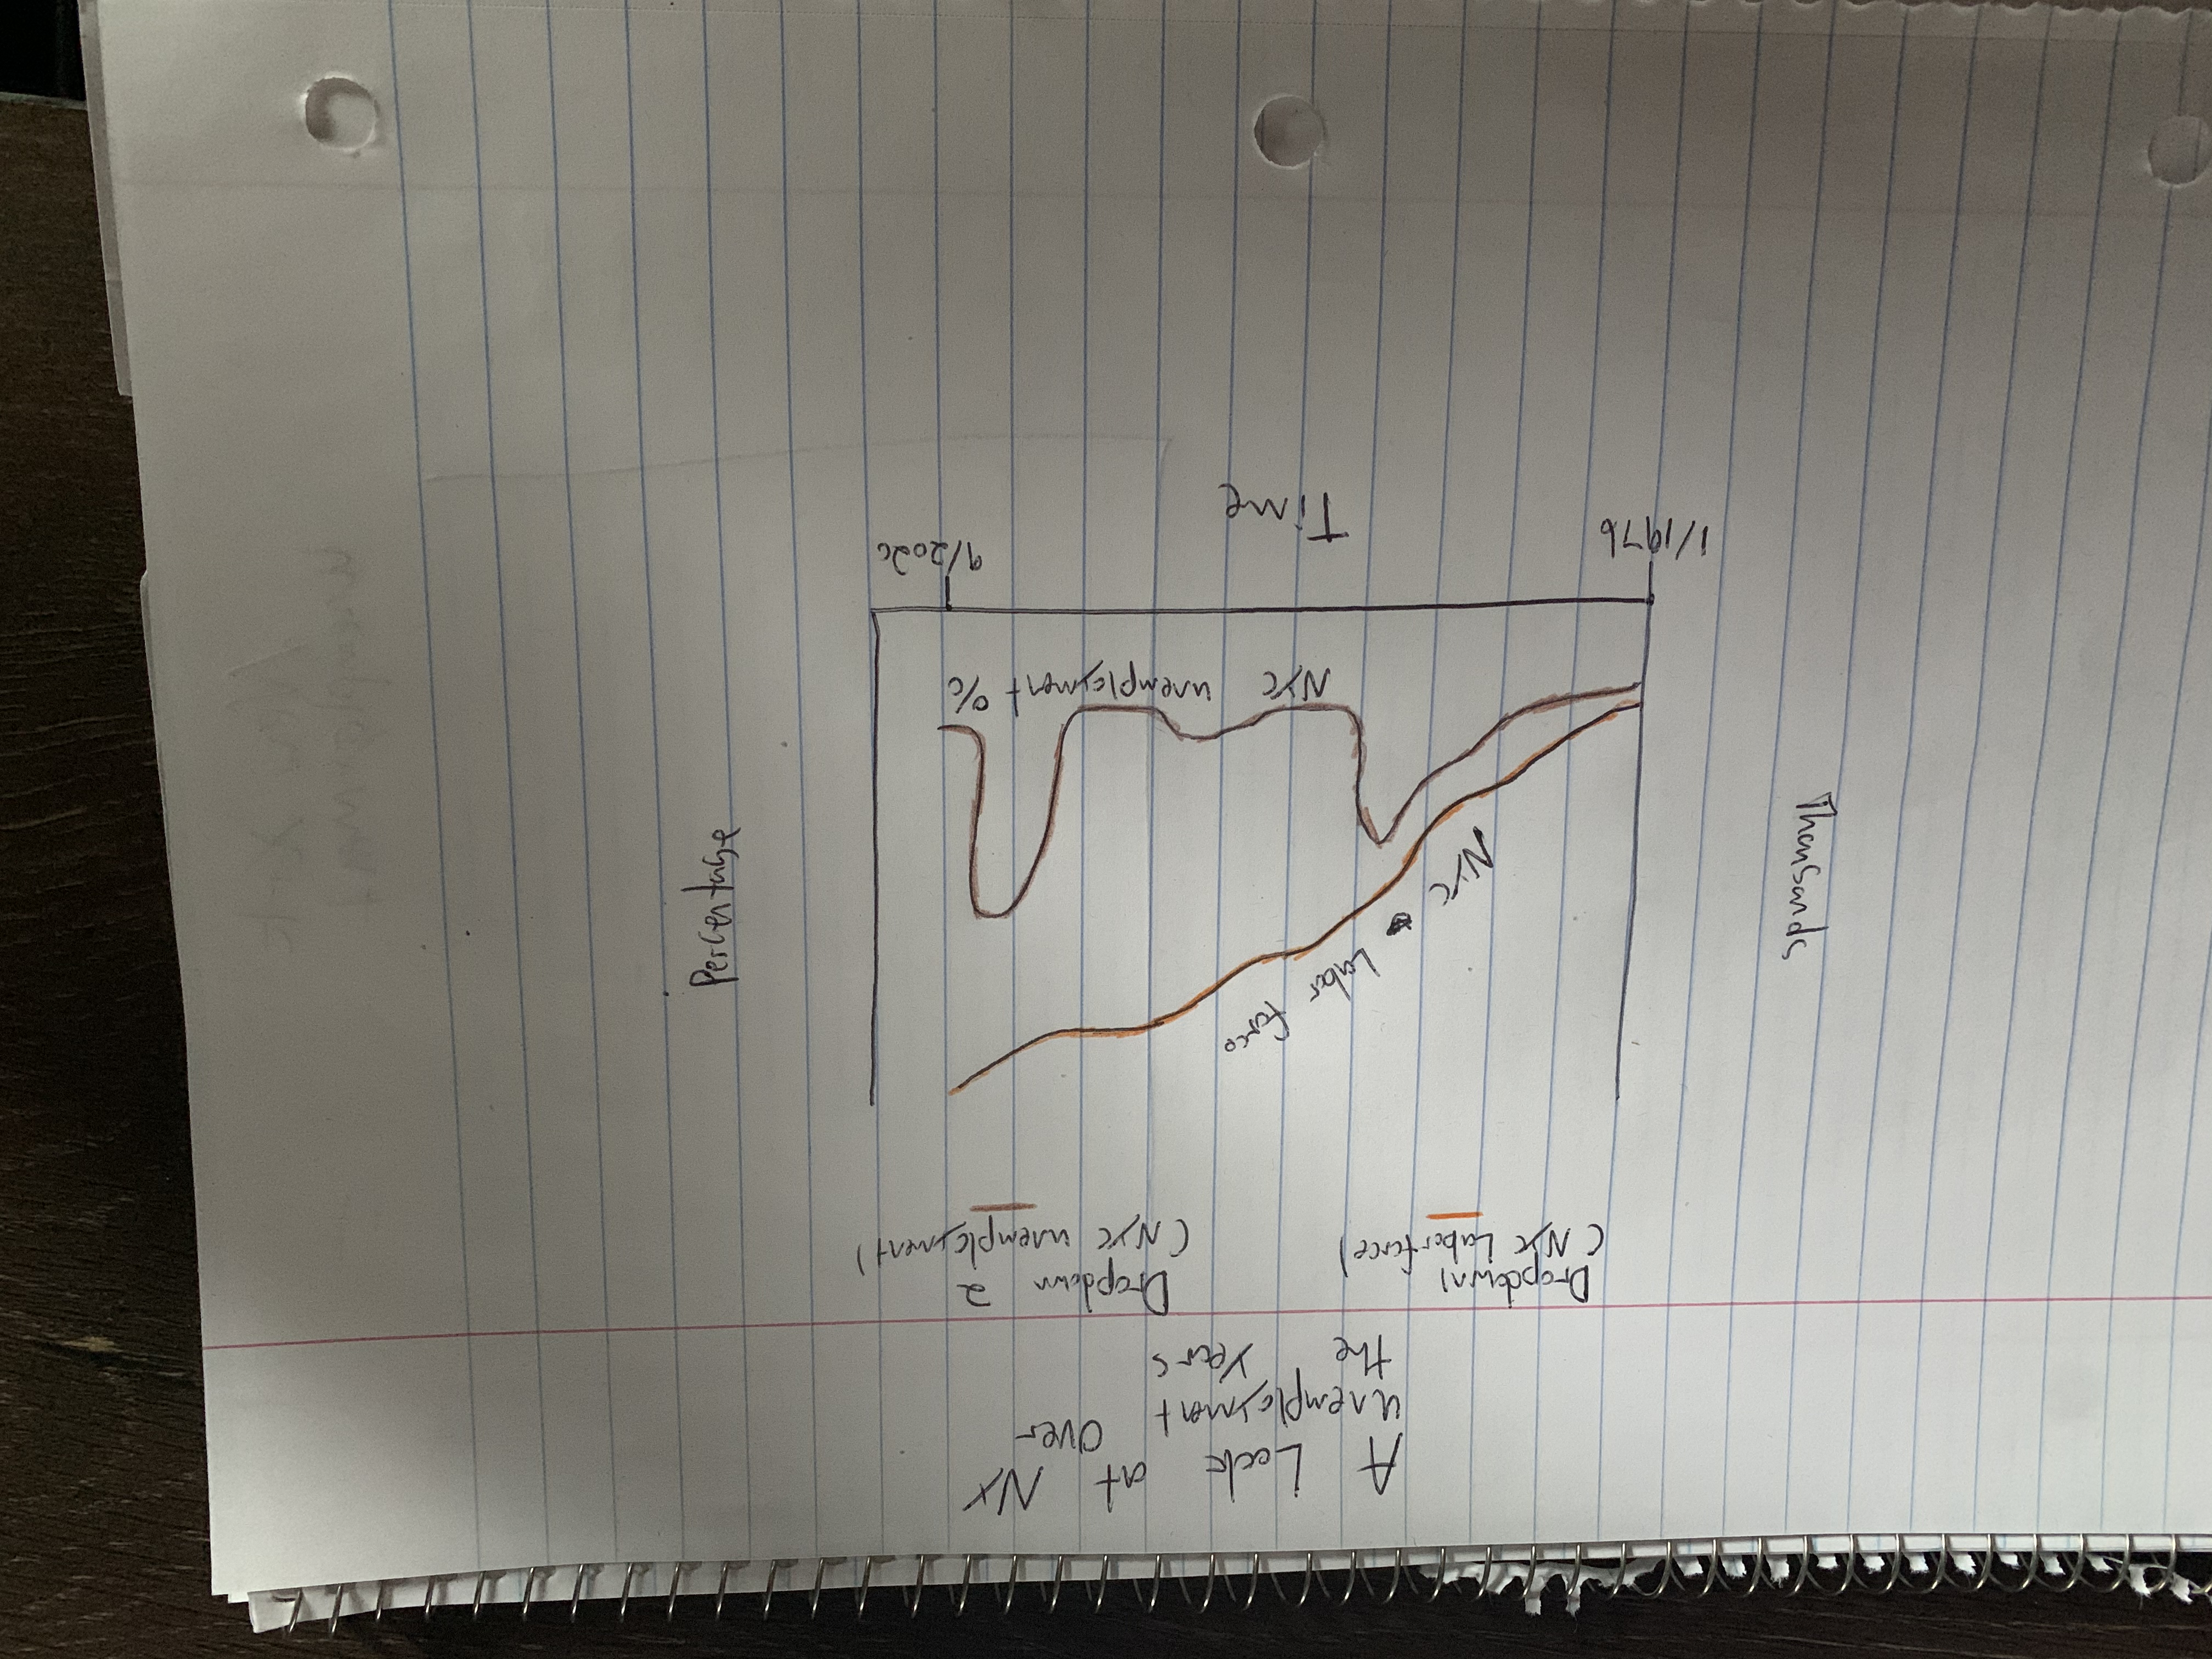 A Look at NY
unemployment over
the years
Dropdown 1
(NYC Labor force)
Dropdown 2
(NYC unemployment)
Thousands
NYC Labor force
NYC unemployment %
Percentage
1/1976
9/2020
Time
New York
unemployment